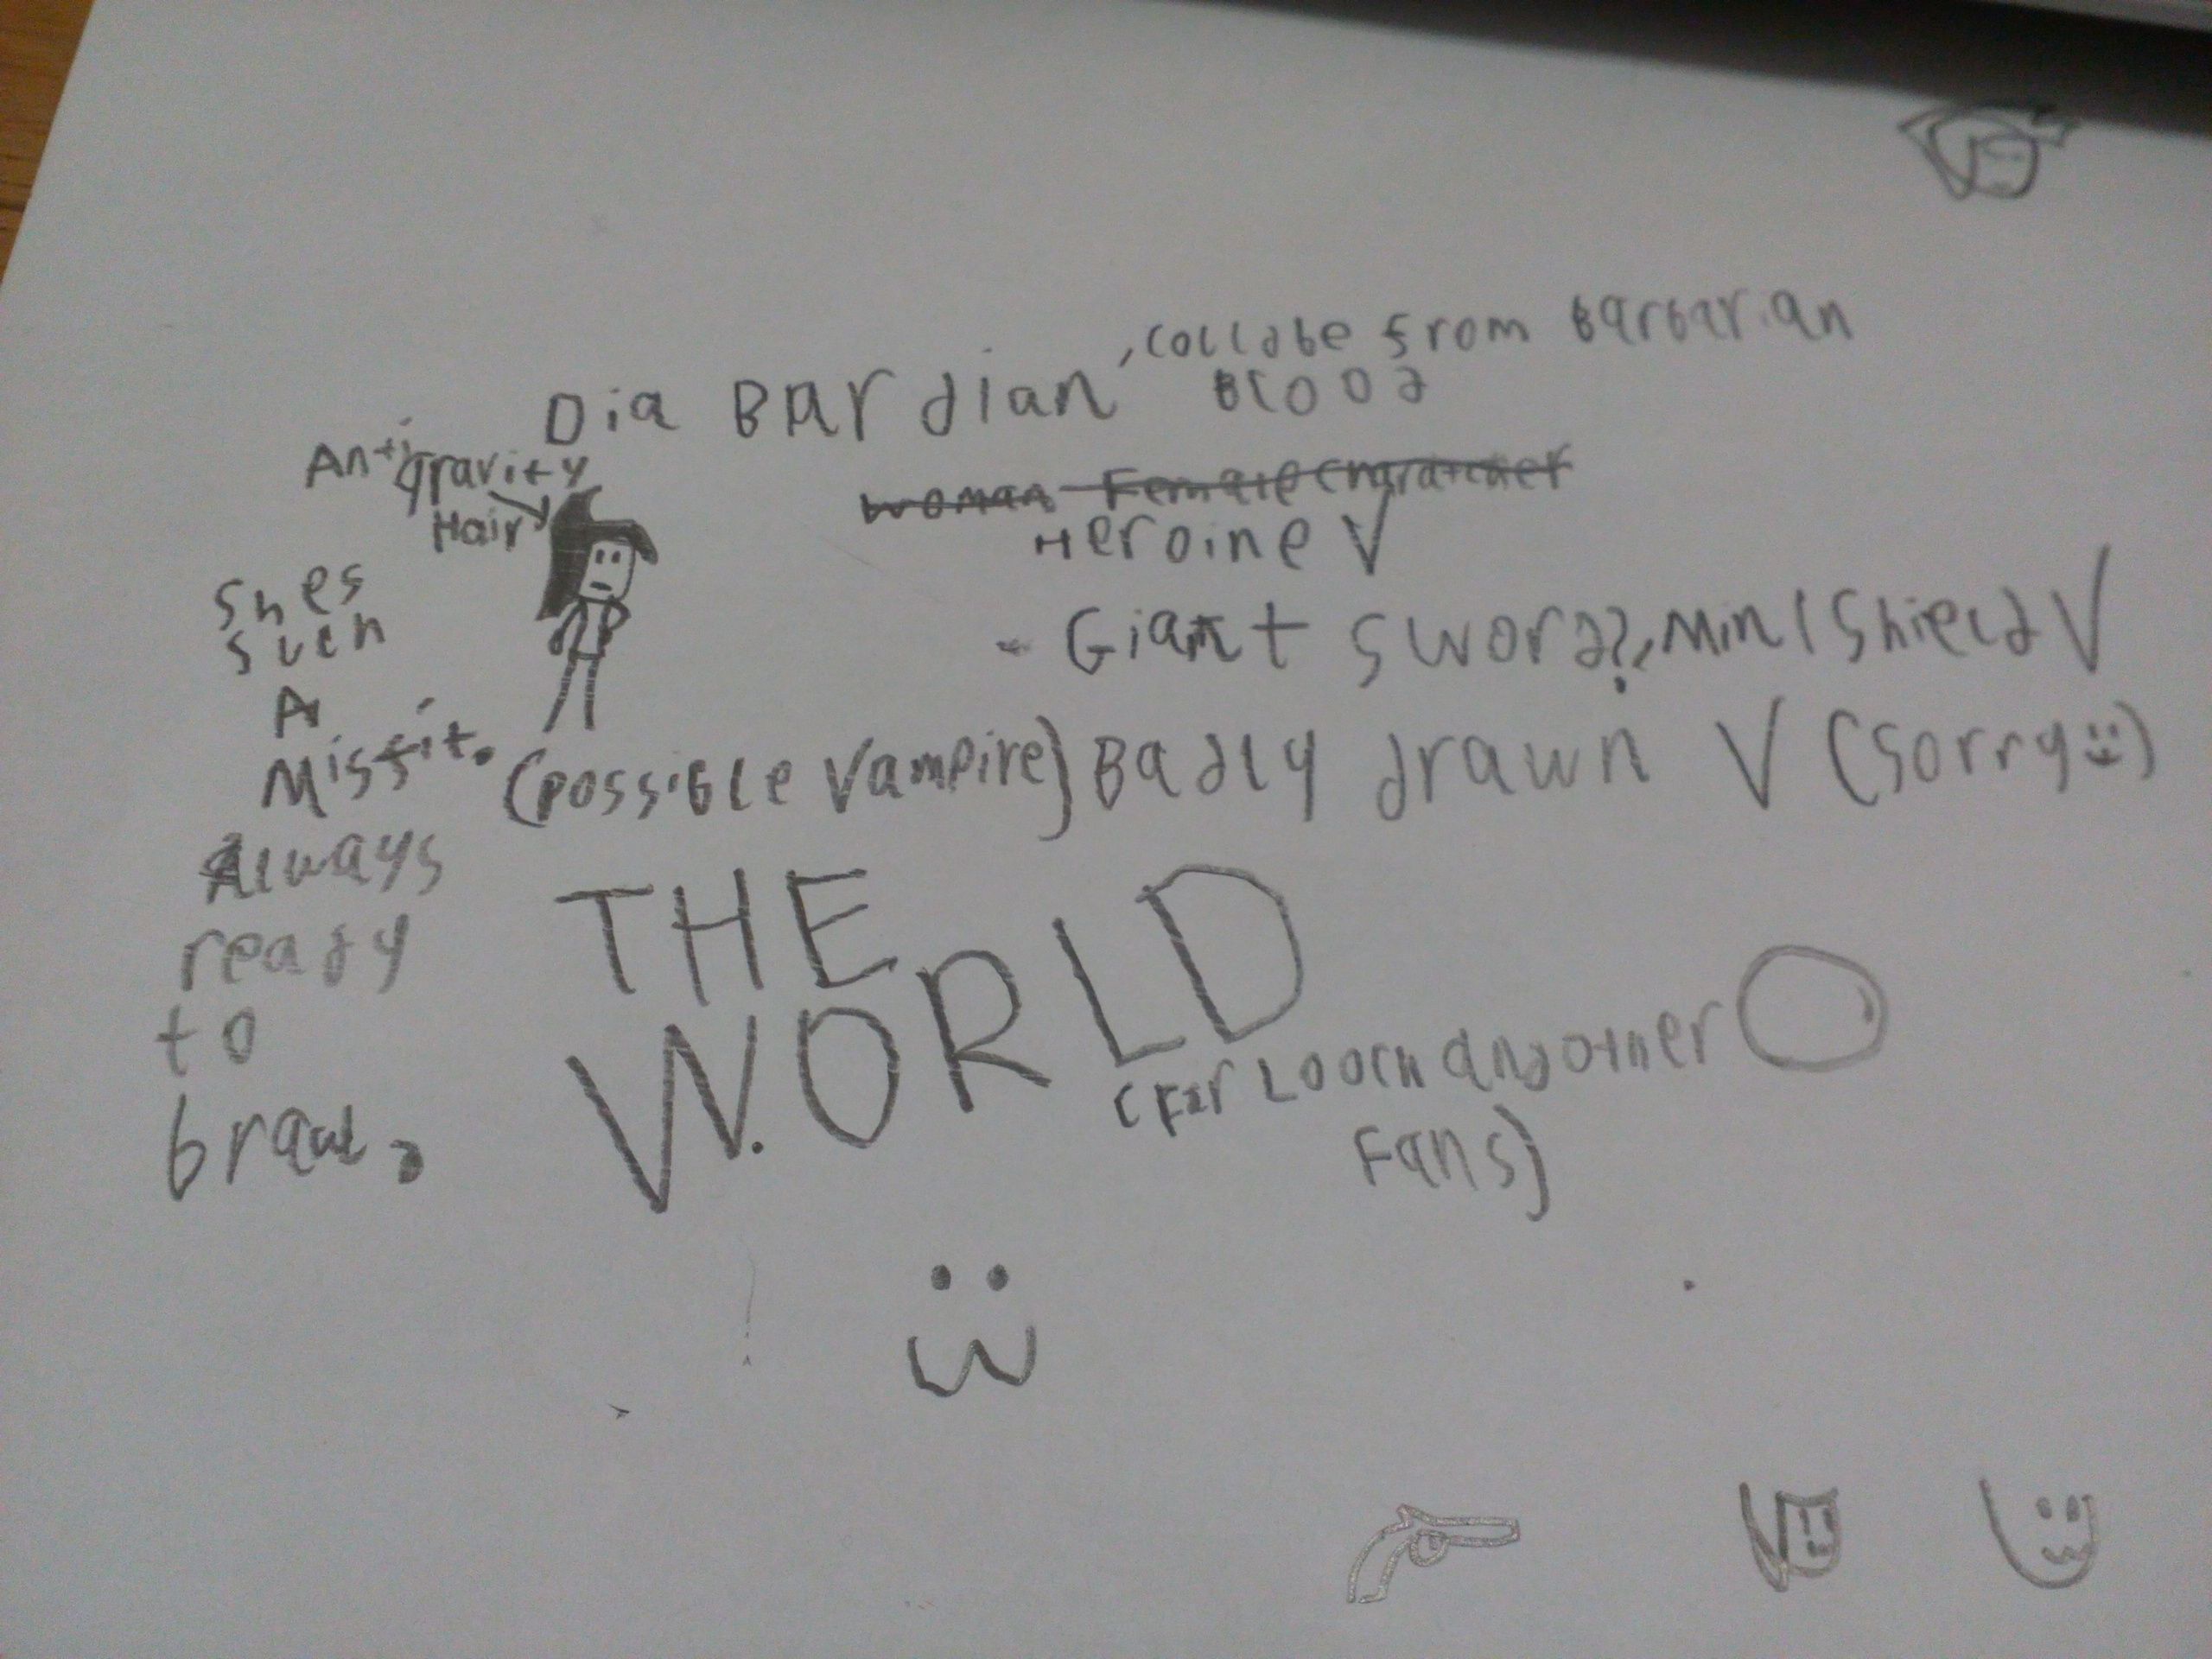 Dia Bardian
,collabe from Barbarian
Blood
Anti
gravity
Hair
woman Female
Heroine V
- Giant sword?, Mini shield V
shes
such
A
Misfit.
(possible vampire) Badly drawn V (sorry :3)
Always
ready
to
brawl.
THE
WORLD
(For Looch and other
Fans)
:3